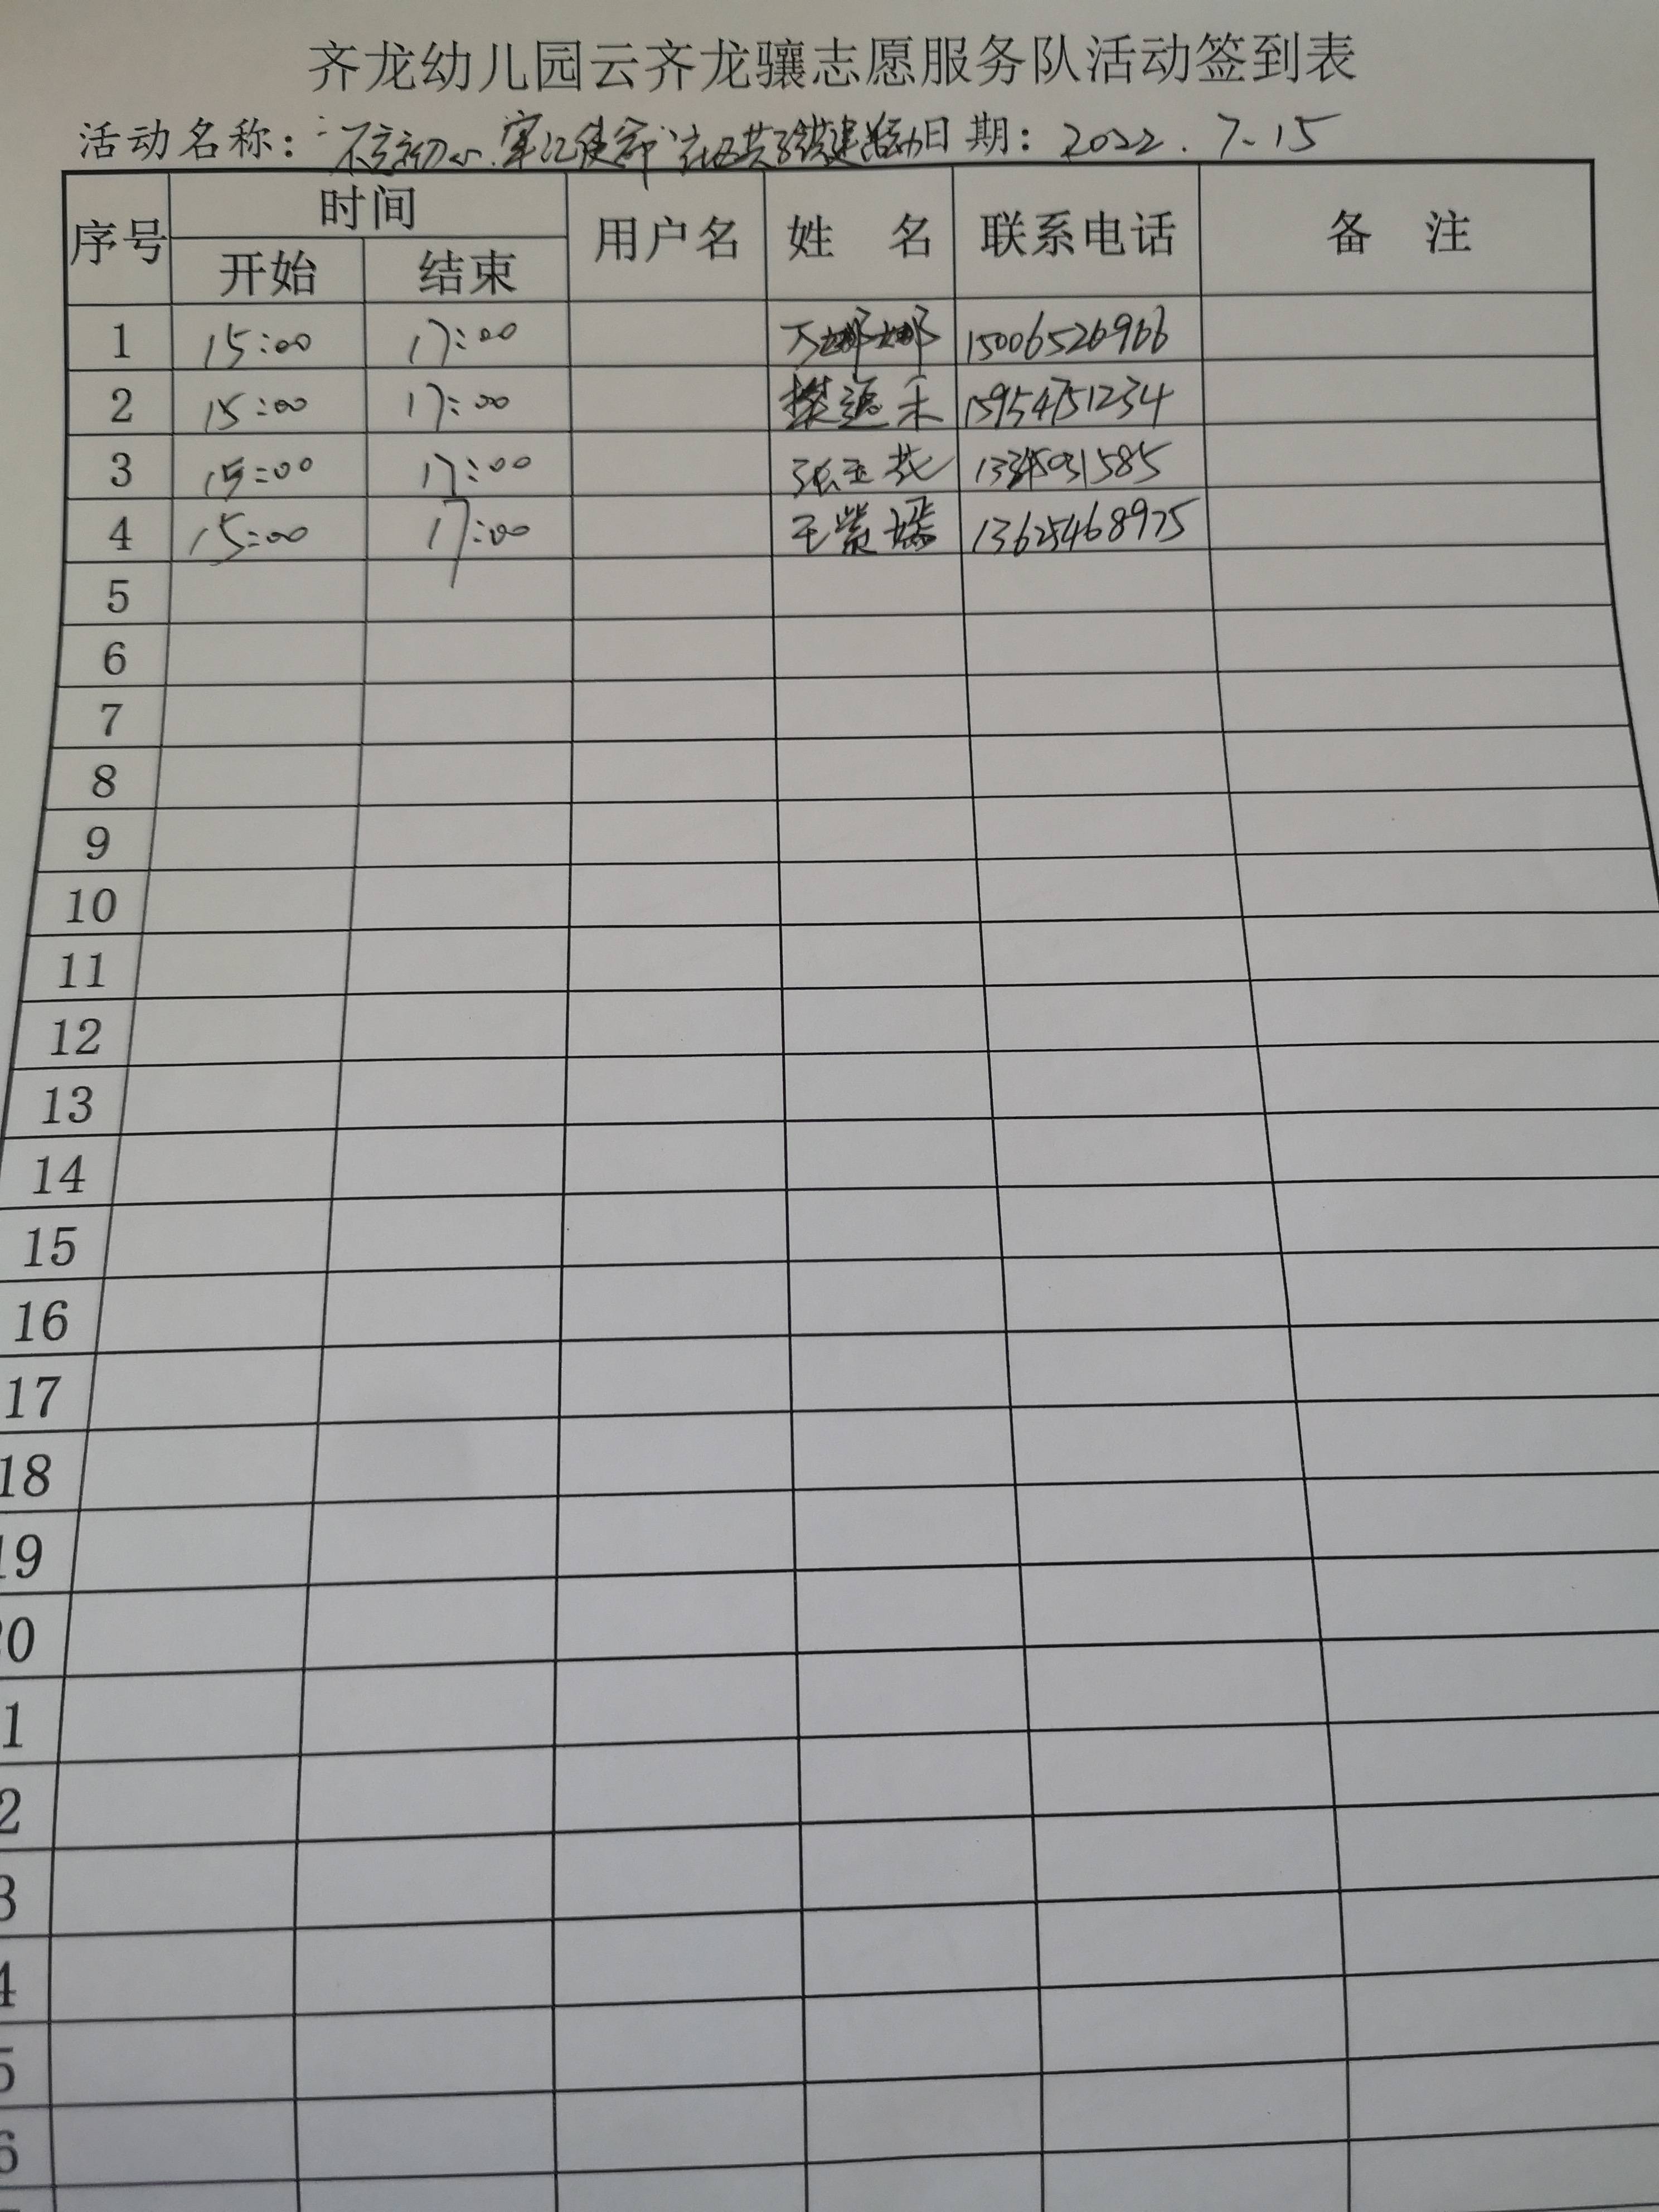 齐龙幼儿园云齐龙骧志愿服务队活动签到表
活动名称："不忘初心.牢记使命"社区共驻共建活动 日期：2022.7.15
序号 时间 用户名 姓 名 联系电话 备 注
开始 结束
1 15:00 17:00 万娜娜 15006526966
2 15:00 17:00 15954751234
3 15:00 17:00 张玉花
4 15:00 17:00 王紫嫣 13625468975
5
6
7
8
9
10
11
12
13
14
15
16
17
18
19
20
1
2
3
4
5
6